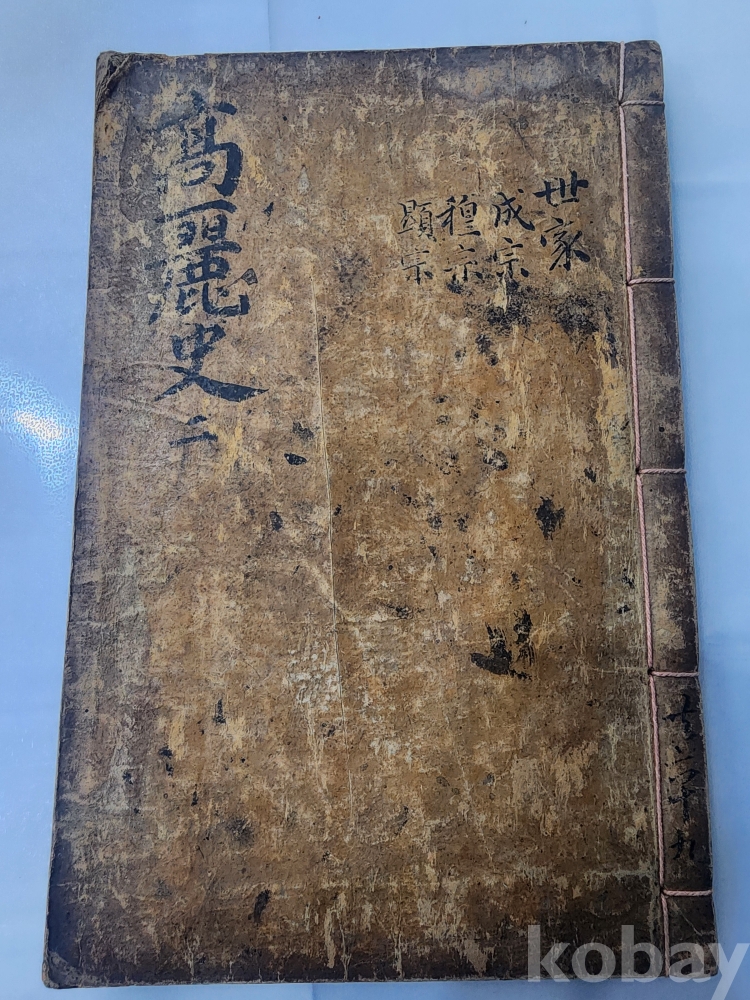 高麗史 二
世家
成宗
穆宗
顯宗
kobay